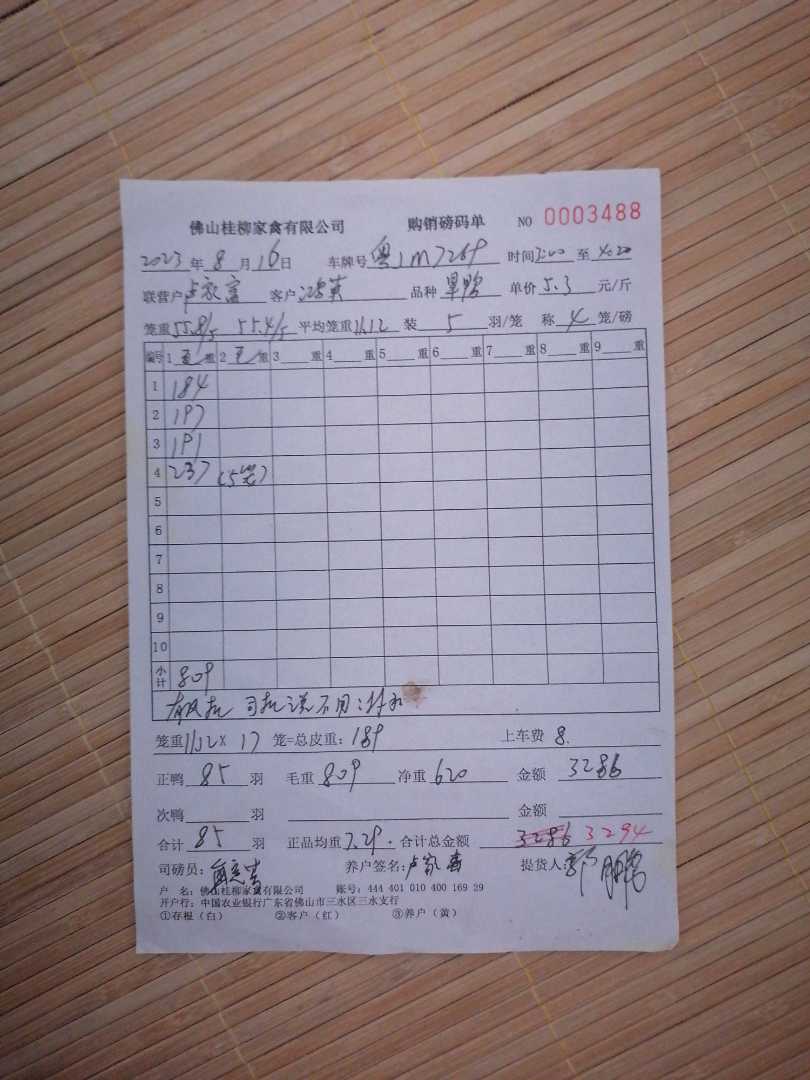 佛山桂柳家禽有限公司 购销磅码单 NO 0003488
2023年8月16日 车牌号 粤JM7269 时间3:00至4:20
联营户 卢家富 客户 品种 单价5.3元/斤
笼重55.8/5 55.4/5 平均笼重11.12 装5羽/笼 称4笼/磅
编号 1 毛 重 2 毛 重 3 重 4 重 5 重 6 重 7 重 8 重 9 重
1 184
2 197
3 191
4 237 (5笼)
5
6
7
8
9
10
小计 809
司机说不用
笼重11.12×17笼=总皮重:189 上车费8.
正鸭85羽 毛重809 净重620 金额3286
次鸭 羽 金额
合计85羽 正品均重7.29. 合计总金额 3286 3294
司磅员: 养户签名:卢家富 提货人:
户 名:佛山桂柳家禽有限公司 账号:444 401 010 400 169 29
开户行:中国农业银行广东省佛山市三水区三水支行
①存根(白) ②客户(红) ③养户(黄)